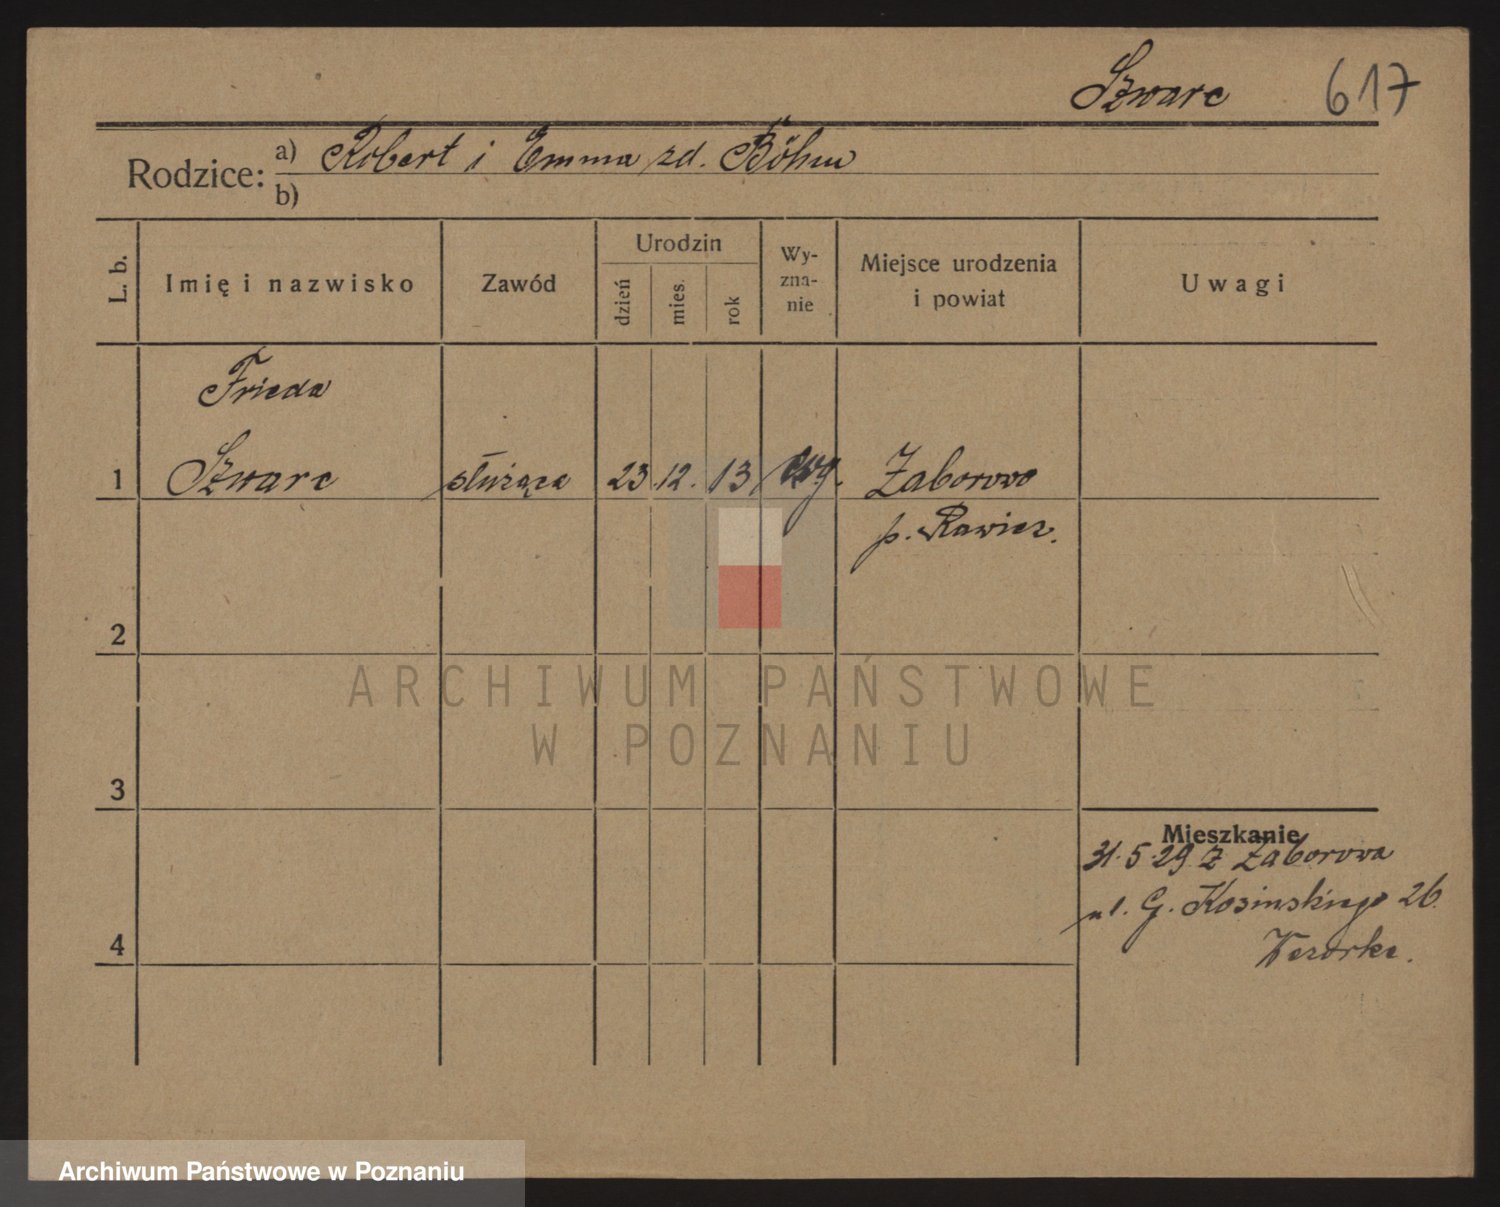 Szwarc 617
Rodzice: a) Robert i Emma zd. Böhm
b)
L. b. Imię i nazwisko Zawód Urodzin dzień mies. rok Wy-zna-nie Miejsce urodzenia i powiat Uwagi
Frieda
1 Szwarc służąca 23 12. 13 ewg. Zaborowo
p. Rawicz.
2
ARCHIWUM PAŃSTWOWE
W POZNANIU
3
Mieszkanie
31.5.29 z Zaborowa
4 ul. G. Kosinskiego 26.
Archiwum Państwowe w Poznaniu